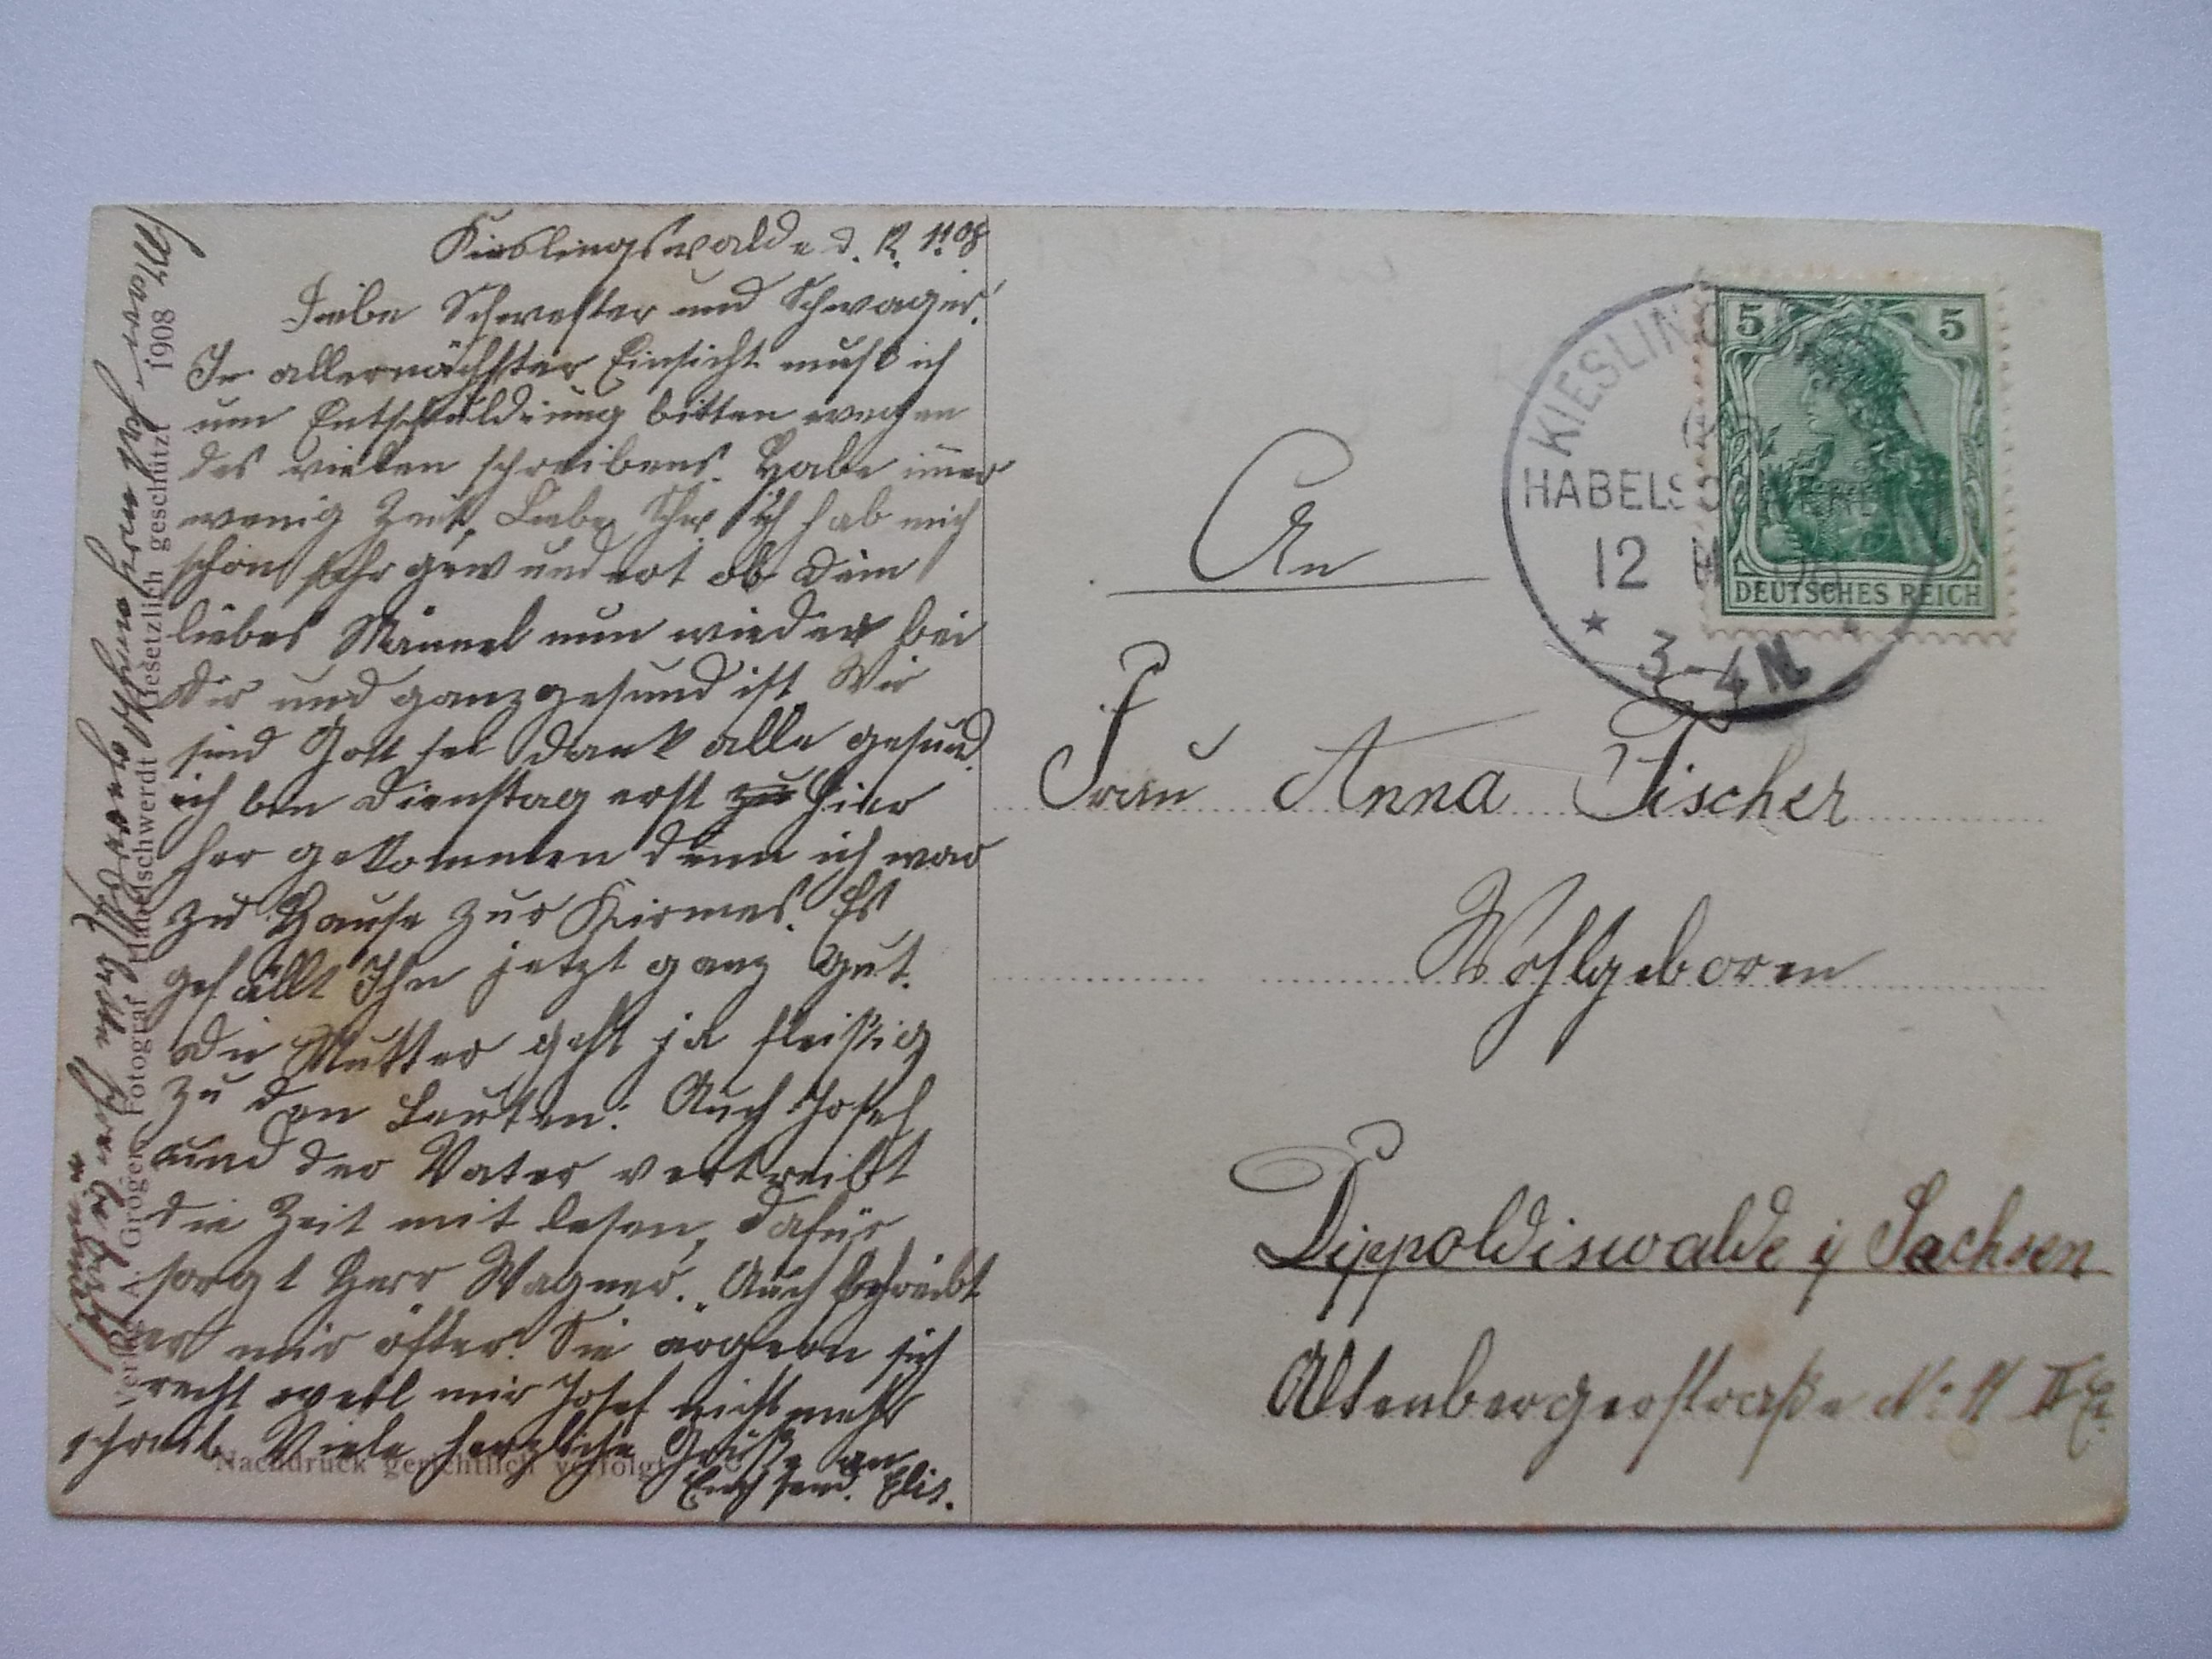 Kieslingswalde d. 12. 11. 08
Liebe Schwester und Schwager!
In allernächster Einsicht muß ich
um Entschuldiung bitten wegen
des vielen schreibens. Habe immer
wenig Zeit, Liebe Schw. ich hab mich
schon sehr gewundert ob Dein
liebes Männel nun wieder bei
Dir und ganz gesund ist. Wir
sind Gott sei Dank alle gesund.
ich bin Dienstag erst zu hier
her gekommen denn ich war
zu Hause zur Kirmes. Es
gefällt Ihn jetzt ganz Gut.
Die Mutter geht ja fleißig
zu den Leuten. Auch Josef
und der Vater vertreibt
die Zeit mit lesen, dafür
sorgt Herr Wagner. Auch schreibt
er mir öfter. Sie ärgern sich
recht weil mir Josef nicht mehr
schreib. Viele herzliche Grüße an
Euch send. Elis.
Verlag A. Gröger, Fotograf Habelschwerdt Gesetzlich geschützt 1908
Nachdruck gerichtlich verfolgt
KIESLING
HABELSCHWERDT
12
3-4N
5 5
DEUTSCHES REICH
An
Frau Anna Fischer
Wohlgeboren
Dippoldiswalde i/ Sachsen
Altenbergerstraße N: 11 II Et.